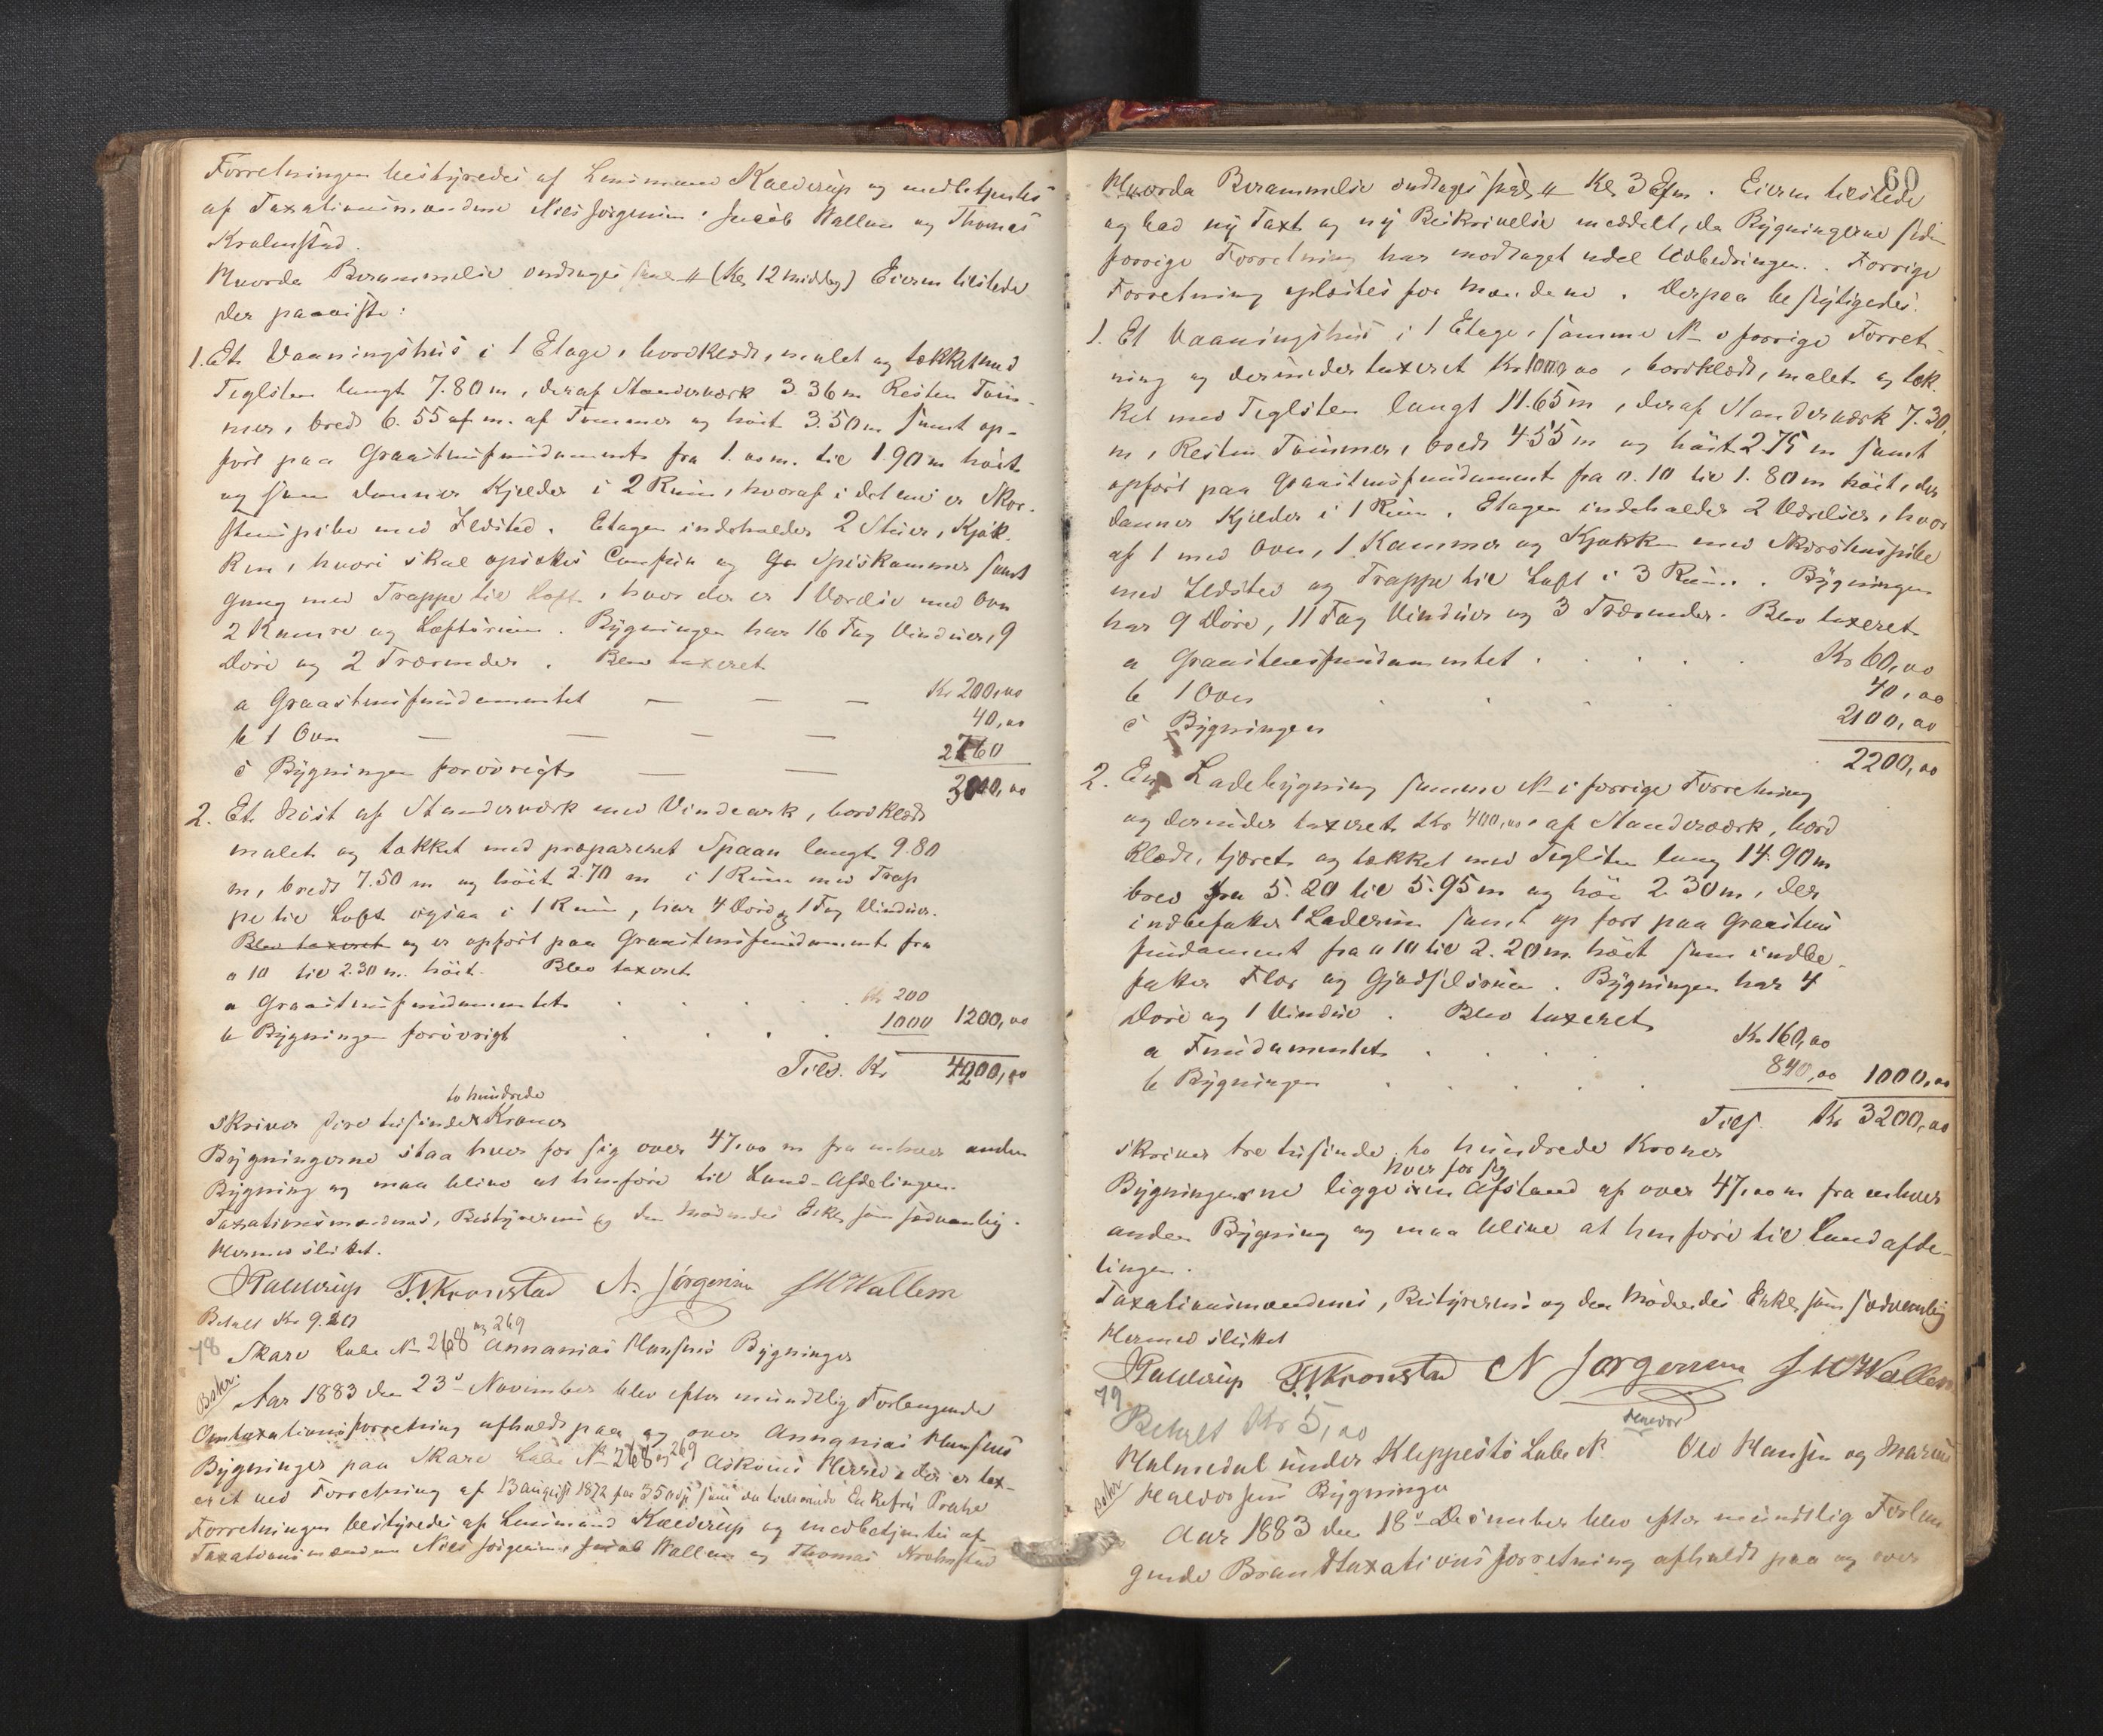 Forretningen bestyredes af Lensmand Kaldrup og medbetjentes
af Taxationsmændene Niels Jørgensen, Jacob Wallem og Thomas
Krohnstad.
Hvorda Berammelse inddroges paa # (Kl 12 middag) Eieren tilstede
der paaviste:
1. Et Vaaningshus i 1 Etage, bordklædt, malet og tækket med
Teglsten langt 7.80 m, deraf Standerværk 3.36 m Resten Tøm-
mer, bredt 6.55 af m. af Tømmer og høit 3.50 m samt op-
ført paa Graastensfundament fra 1.00 m. til 1.90 m høit
og som danner Kjelder i 2 Rum, hvoraf i det ene er Skor-
stenspibe med Ildsted. Etagen indeholder 2 Stuer, Kjøk-
ken, hvori skal opsættes Comfur og Spiskammer samt
Gang med Trappe til Loft, hvor der er 1 Værelse med Ovn
2 Kamre og Loftsrum. Bygningen har 16 Fag Vinduer, 9
Døre og 2 Trærender. Blev taxeret
a Graastensfundamentet — — — Kr 200,00
b 1 Ovn — — — — 40,00
c Bygningen forøvrigt — — 2760
3000,00
2. Et Nøst af Standerværk med Vindeark, bordklædt
malet og tækket med præpareret Spaan langt 9.80
m, bredt 7.50 m og høit 2.70 m i 1 Rum med Trap
pe til Loft ogsaa i 1 Rum, har 4 Døre og 1 Fag Vinduer.
Blev taxeret og er opført paa Graastensfundament fra
0 10 til 2.30 m. høit. Blev taxeret
a Graastensfundamentet . . . . . Kr 200
b Bygningen forøvrigt . . . 1000 1200,00
Tils. Kr 4200,00
to hundrede
skriver fire tusinde Kroner
Bygningerne staa hver for sig over 47,00 m fra enhver anden
Bygning og maa blive at henføre til Land-Afdelingen.
Taxationsmændenes, Bestyrerens og den Mødendes Erkl. som sædvanlig.
Hermed sluttet.
Kaldrup T. Krohnstad N. Jørgensen J M Wallem
Betalt Kr 9.20
78 Skare Løbe No 268 og 269 Annanias Hansens Bygninger
Bskr. Aar 1883 den 23de November blev efter mundtlig Forlangende
Omtaxationsforretning afholdt paa og over Annanias Hansens
Bygninger paa Skare Løbe No 268 og 269 i Askøens Herred, der er tax-
eret ved Forretning af 13 august 1872 for 350 Spd som da tilhørende Enkefru Prahl
Forretningen bestyredes af Lensmand Kaldrup og medbetjentes af
Taxationsmændene Niels Jørgensen, Jacob Wallem og Thomas Krohnstad
60
Hvorda Berammelse inddroges paa # Kl 3 Efm. Eieren tilstede
og bad ny Taxt og ny Beskrivelse meddelt, da Bygningerne siden
forrige Forretning har modtaget udel Udbedringer. Forrige
Forretning oplæstes for Mændene. Derpaa besigtigedes:
1. Et Vaaningshus i 1 Etage, samme No i forrige Forret-
ning og derunder taxeret Kr 1000,00, bordklædt, malet og tæk-
ket med Teglsten langt 11.65 m, deraf Standerværk 7.30
m, Resten Tømmer, bredt 4.55 m og høit 2.75 m samt
opført paa Graastensfundament fra 0.10 til 1.80 m høit, der
danner Kjelder i 1 Rum. Etagen indeholder 2 Værelser, hvor
af 1 med Ovn, 1 Kammer og Kjøkken med Skorstenspibe
med Ildsted og Trappe til Loft i 3 Rum. Bygningen
har 9 Døre, 11 Fag Vinduer og 3 Trærender. Blev taxeret
a Graastensfundamentet . . . . Kr 60,00
b 1 Ovn . . . 40,00
c Bygningen 2100,00
2200,00
2. En Ladebygning samme No i forrige Forretning
og derunder taxeret Kr 400,00, af Standerværk, bord
klædt, tjæret og tækket med Teglsten lang 14.90 m
bred fra 5.20 til 5.95 m og høi 2.30 m, der
indbefatter 1 Laderum samt opført paa Graastens
fundament fra 0 10 til 2.20 m. høit som indbe-
fatter Flor og Gjødselsrum. Bygningen har 4
Døre og 1 Vindue. Blev taxeret
a Fundamentet . . . . Kr 160,00
b Bygningen . . . . 840,00 1000,00
Tils. Kr 3200,00
skriver tre tusinde to hundrede Kroner
hver for sig
Bygningerne ligge i en Afstand af over 47,00 m fra enhver
anden Bygning og maa blive at henføre til Landafde-
lingen.
Taxationsmændenes, Bestyrerens og den Mødendes Erkl. som sædvanlig
Hermed sluttet
Kaldrup T. Krohnstad N Jørgensen J M Wallem
79 Betalt Kr 5,00
Holmedal under Kleppestø Løbe No Ole Hansen og Marius
Bskr Haldorsens Bygninger
Aar 1883 den 18de December blev efter mundtlig Forlan
gende Brandtaxationsforretning afholdt paa og over